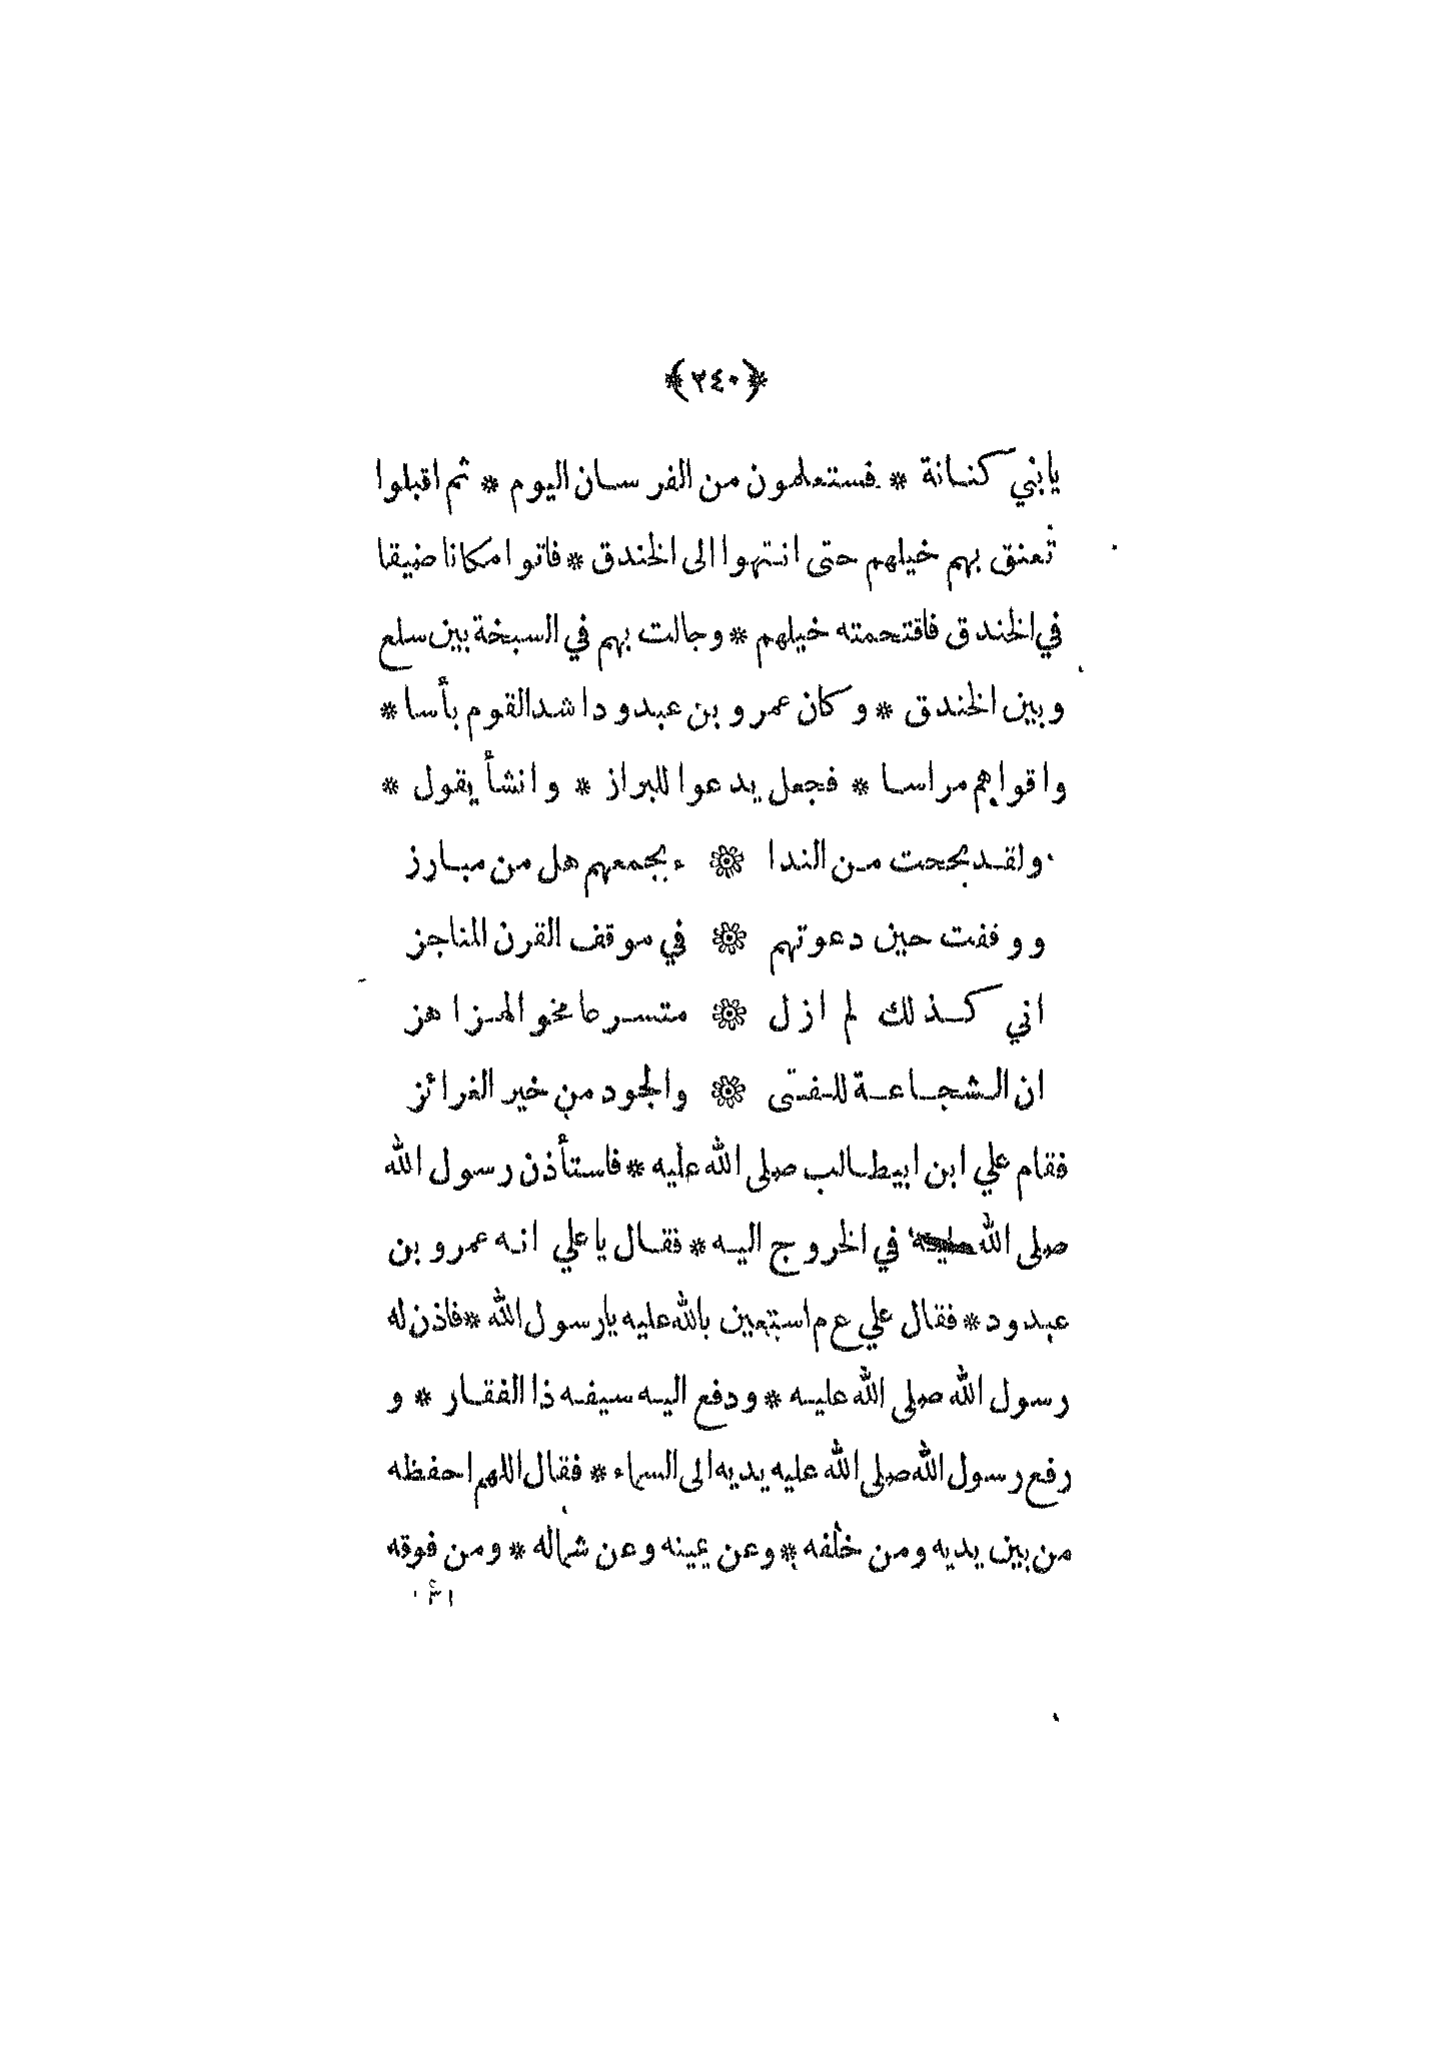 ﴿٢٤٠﴾
يابني كنانة * فستعلمون من الفرسان اليوم * ثم اقبلوا
تعنق بهم خيلهم حتى انتهوا الى الخندق * فاتوا مكانا ضيقا
في الخندق فاقتحمته خيلهم * وجالت بهم في السبخة بين سلع
وبين الخندق * وكان عمرو بن عبدود اشد القوم بأسا *
واقواهم مراسا * فجعل يدعوا للبراز * وانشأ يقول *
ولقد بححت من الندا * ء بجمعهم هل من مبارز
ووقفت حين دعوتهم * في موقف القرن المناجز
اني كذلك لم ازل * متسرعا نحو الهزاهز
ان الشجاعة للفتى * والجود من خير الغرائز
فقام علي ابن ابيطالب صلى الله عليه * فاستأذن رسول الله
صلى الله عليه في الخروج اليه * فقال يا علي انه عمرو بن
عبدود * فقال علي ع م استعين بالله عليه يارسول الله * فاذن له
رسول الله صلى الله عليه * ودفع اليه سيفه ذا الفقار * و
رفع رسول الله صلى الله عليه يديه الى السماء * فقال اللهم احفظه
من بين يديه ومن خلفه * وعن يمينه وعن شماله * ومن فوقه